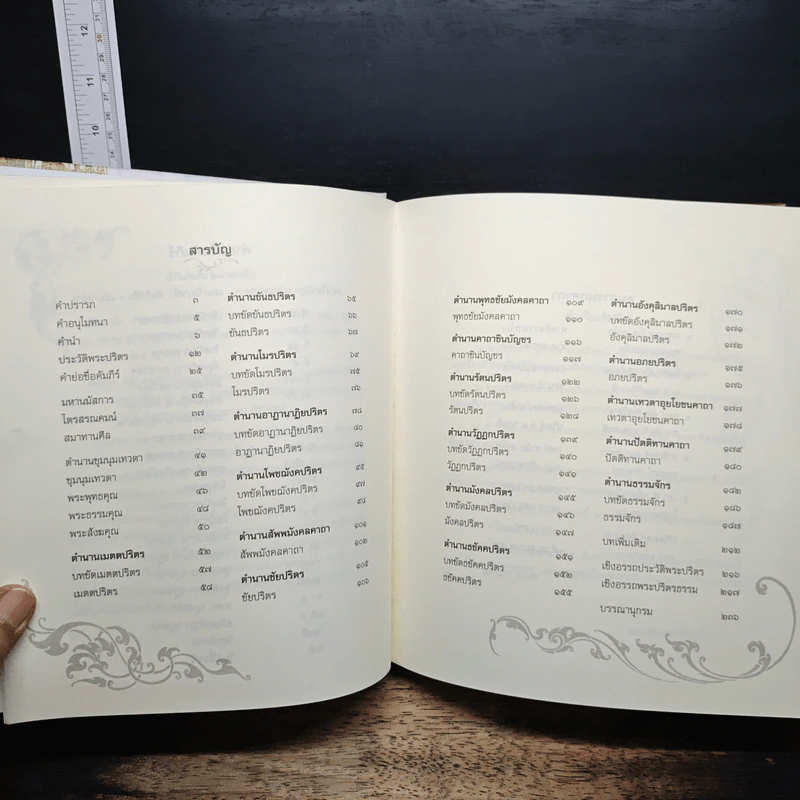 12
11
10
สารบัญ
คำปรารภ ๓
คำอนุโมทนา ๕
คำนำ ๖
ประวัติพระปริตร ๑๒
คำย่อชื่อคัมภีร์ ๒๕
มหานมัสการ ๓๕
ไตรสรณคมน์ ๓๗
สมาทานศีล ๓๙
ตำนานชุมนุมเทวดา ๔๑
ชุมนุมเทวดา ๔๒
พระพุทธคุณ ๔๖
พระธรรมคุณ ๔๘
พระสังฆคุณ ๕๐
ตำนานเมตตปริตร ๕๒
บทขัดเมตตปริตร ๕๗
เมตตปริตร ๕๘
ตำนานขันธปริตร ๖๕
บทขัดขันธปริตร ๖๖
ขันธปริตร ๖๗
ตำนานโมรปริตร ๖๙
บทขัดโมรปริตร ๗๕
โมรปริตร ๗๖
ตำนานอาฏานาฏิยปริตร ๗๘
บทขัดอาฏานาฏิยปริตร ๘๐
อาฏานาฏิยปริตร ๘๑
ตำนานโพชฌังคปริตร ๙๕
บทขัดโพชฌังคปริตร ๙๗
โพชฌังคปริตร ๙๘
ตำนานสัพพมังคลคาถา ๑๐๑
สัพพมังคลคาถา ๑๐๒
ตำนานชัยปริตร ๑๐๕
ชัยปริตร ๑๐๖
ตำนานพุทธชัยมังคลคาถา ๑๐๙
พุทธชัยมังคลคาถา ๑๑๐
ตำนานคาถาชินบัญชร ๑๑๖
คาถาชินบัญชร ๑๑๗
ตำนานรัตนปริตร ๑๒๒
บทขัดรัตนปริตร ๑๒๖
รัตนปริตร ๑๒๘
ตำนานวัฏฏกปริตร ๑๓๙
บทขัดวัฏฏกปริตร ๑๔๐
วัฏฏกปริตร ๑๔๑
ตำนานมังคลปริตร ๑๔๕
บทขัดมังคลปริตร ๑๔๖
มังคลปริตร ๑๔๗
ตำนานธชัคคปริตร ๑๕๑
บทขัดธชัคคปริตร ๑๕๒
ธชัคคปริตร ๑๕๕
ตำนานอังคุลิมาลปริตร ๑๗๐
บทขัดอังคุลิมาลปริตร ๑๗๑
อังคุลิมาลปริตร ๑๗๒
ตำนานอภยปริตร ๑๗๕
อภยปริตร ๑๗๖
ตำนานเทวตาอุยโยชนคาถา ๑๗๗
เทวตาอุยโยชนคาถา ๑๗๘
ตำนานปัตติทานคาถา ๑๗๙
ปัตติทานคาถา ๑๘๐
ตำนานธรรมจักร ๑๘๒
บทขัดธรรมจักร ๑๘๖
ธรรมจักร ๑๘๗
บทเพิ่มเติม ๒๑๒
เชิงอรรถประวัติพระปริตร ๒๑๖
เชิงอรรถพระปริตรธรรม ๒๑๗
บรรณานุกรม ๒๓๖